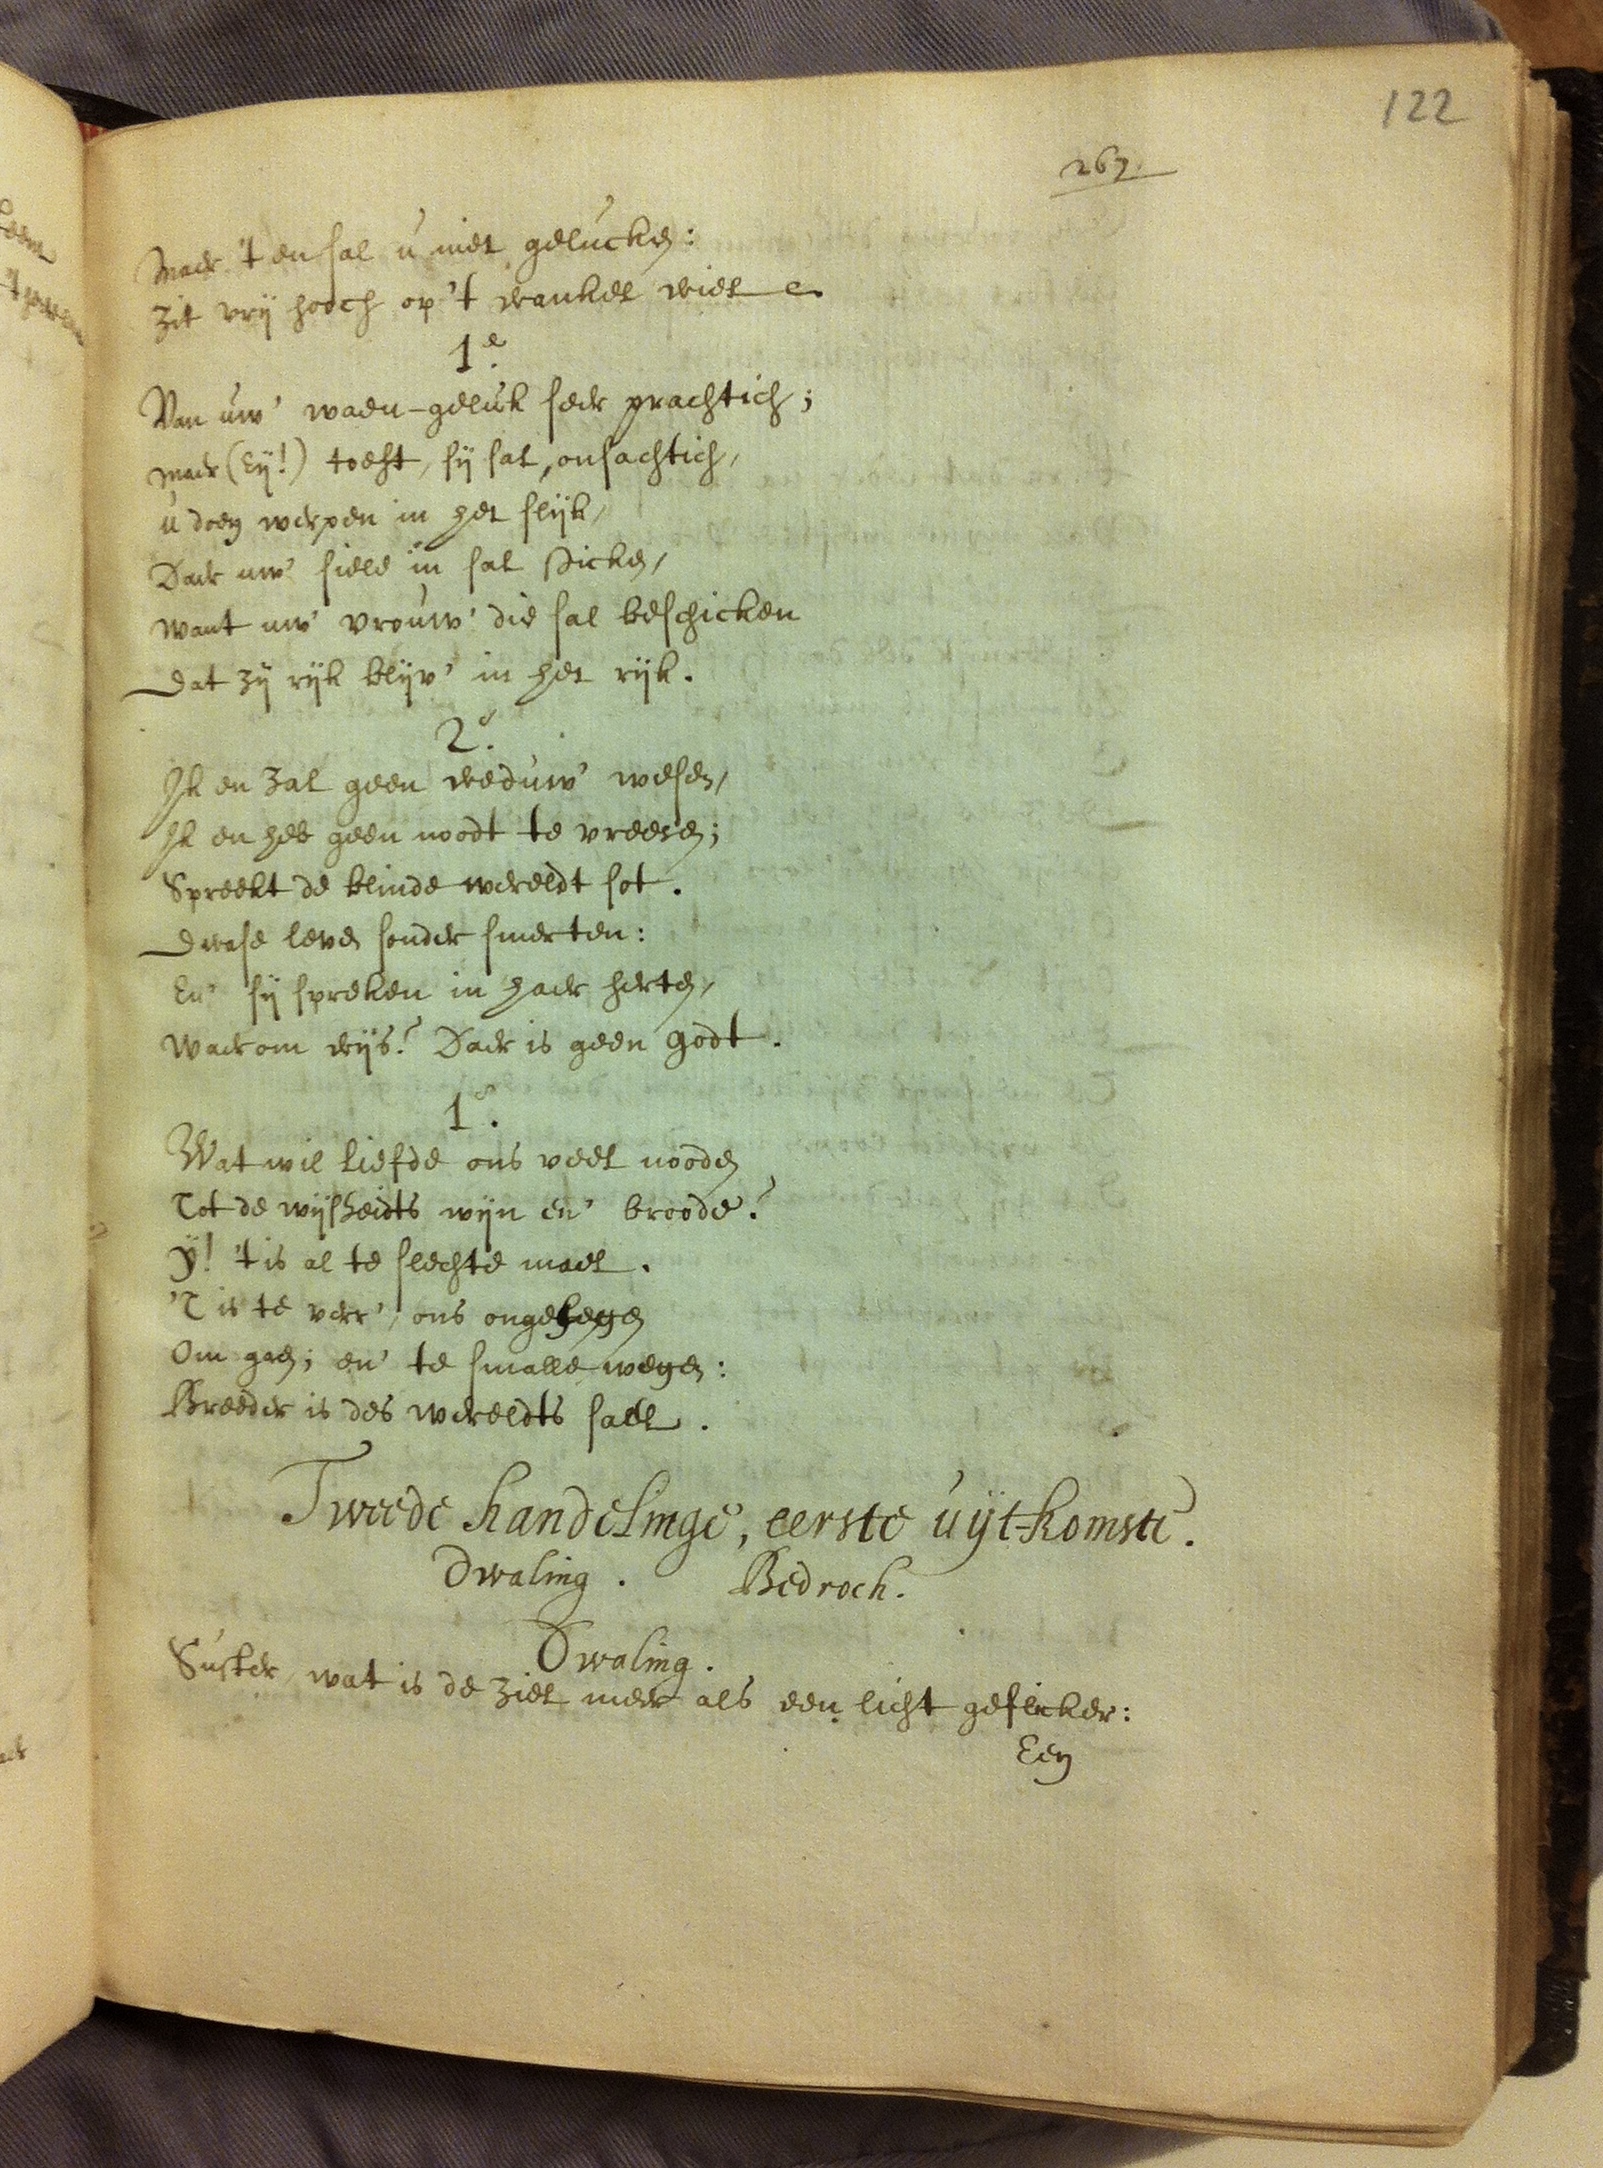 122
267.
Maer 't en sal u niet gelucken:
Zit vrij hooch op 't wankel wiel
1e.
Van uw' waen-geluk seer prachtich;
maer (Eÿ!) toeft, sÿ sal, onsachtich,
u doen werpen in het slijk,
Daer uw' siele in sal sticken,
want uw' vrouw' die sal beschicken
Dat zÿ rijk blijv' in het rijk.
2e.
Ik en zal geen weduw' wesen,
Ik en heb geen noodt te vreesen;
Spreekt de blinde wereldt sot.
Dwase leven sonder smerten:
En' sÿ spreken in haer herten,
Waerom wijs? Daer is geen Godt.
1e.
Wat wil liefde ons veel nooden
Tot de wijsheidts wijn en' broode?
ÿ! 't is al te slechte mael.
'T is te verr', ons ongelegen
Om gaen; en' te smalle wegen:
Breeder is des wereldts sael.
Tweede handelinge, eerste uÿt-komste.
Dwaling. Bedroch.
Dwaling.
Suster, wat is de ziel meer als een licht geflicker:
Een